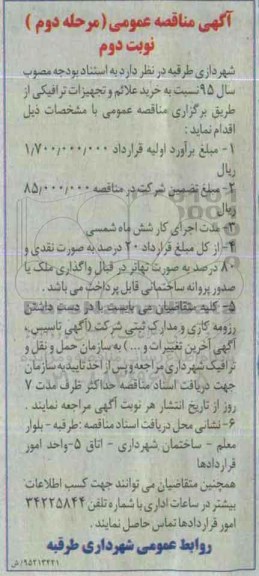 آگهی مناقصه عمومی ( مرحله دوم )
نوبت دوم
شهرداری طرقبه در نظر دارد به استناد بودجه مصوب
سال ۹۵ نسبت به خرید علائم و تجهیزات ترافیکی از
طریق برگزاری مناقصه عمومی با مشخصات ذیل
اقدام نماید :
۱- مبلغ برآورد اولیه قرارداد ۱/۷۰۰/۰۰۰/۰۰۰
ریال
۲- مبلغ تضمین شرکت در مناقصه ۸۵/۰۰۰/۰۰۰
ریال
۳- مدت اجرای کار شش ماه شمسی
۴- از کل مبلغ قرارداد ۲۰ درصد به صورت نقدی و
۸۰ درصد به صورت تهاتر در قبال واگذاری ملک یا
صدور پروانه ساختمانی قابل پرداخت می باشد .
۵- کلیه متقاضیان می بایست با در دست داشتن
رزومه کاری و مدارک ثبتی شرکت (آگهی تاسیس ،
آگهی آخرین تغییرات و ... ) به سازمان حمل و نقل و
ترافیک شهرداری مراجعه و پس از اخذ تاییدیه سازمان
جهت دریافت اسناد مناقصه حداکثر ظرف مدت ۷
روز از تاریخ انتشار هر نوبت آگهی مراجعه نمایند .
۶- نشانی محل دریافت اسناد مناقصه :طرقبه - بلوار
معلم - ساختمان شهرداری - اتاق ۵-واحد امور
قراردادها
همچنین متقاضیان می توانند جهت کسب اطلاعات
بیشتر در ساعات اداری با شماره تلفن ۳۴۲۲۵۸۴۴
امور قراردادها تماس حاصل نمایند .
روابط عمومی شهرداری طرقبه
۹۵۲۱۳۲۲۱/ش